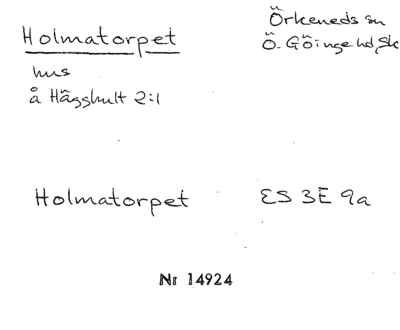 Holmatorpet
Örkeneds sn
Ö. Göinge hd, Sk
hus
å Hägghult 2:1
Holmatorpet
ES 3E 9a
Nr 14924